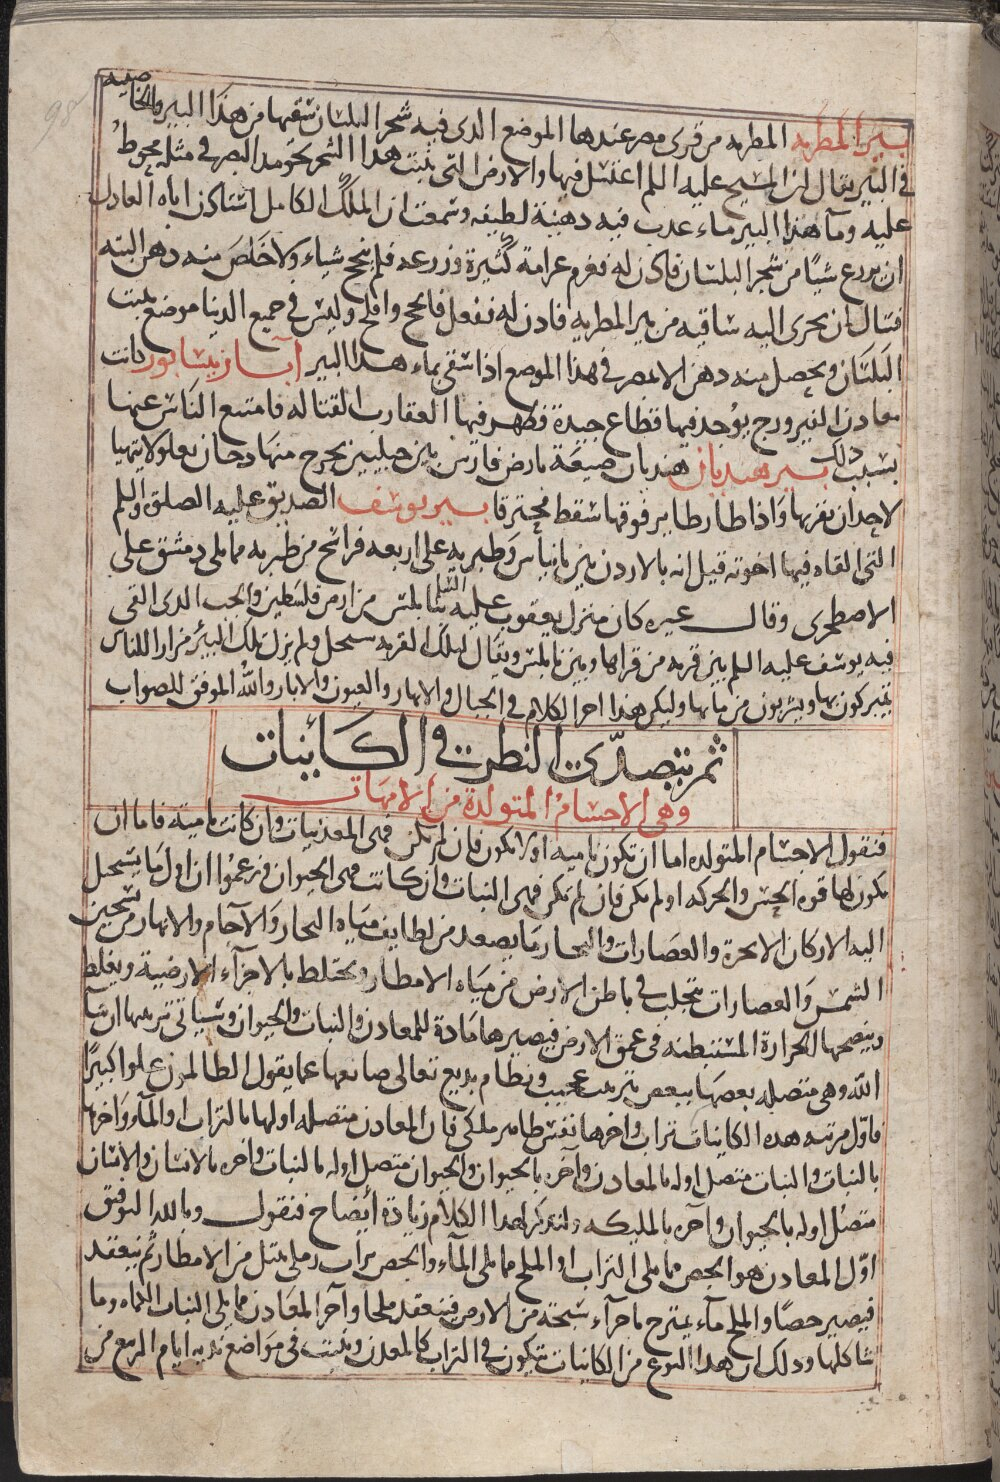 98
بير المطريه المطريه من قرى مصر عندها الموضع الدى فيه شجر البلسان سقيها من هذا البير والخاصيه
فى البير يقال ان المسيح عليه السلم اغتسل فيها والارض التى ينبت هدا الشجر نحو مد البصر فى مثله محوط
عليه وماء هذا البير ماء عدب فيه دهنية لطيفه وسمعت ان الملك الكامل استاذن اباه العادل
ان يزرع شيئا من شجر البلسان فاذن له فغرم غرامة كثيرة وزرعه فلم ينجح شياء ولا خلص منه دهن البته
فسال ان يجرى اليه ساقيه من بير المطريه فاذن له ففعل فانجح وافلح وليس فى جميع الدنيا موضع ينبت
البلسان ويحصل منه دهن الا بمصر فى هذا الموضع اذا سقى بماء هدا البير آبار نيسابور كانت
معادن الفيروزج يوجد فيها قطاع جيدة فظهر فيها العقارب القتاله فامتنع الناس عنها
بسبب ذلك بير هنديان هنديان ضيعة بارض فارس بين جبلين يخرج منها دخان يعلو لا يتهيا
لاحد ان يقربها واذا طار طاير فوقها سقط محترقا بير يوسف الصديق عليه الصلوة والسلم
التى القاه فيها اخوته قيل انه بالاردن بين بانياس وطبريه على اربعه فراسخ من طبريه مما يلى دمشق على
الاصطخرى وقال غيره كان منزل يعقوب عليه السلم بنابلس من ارض فلسطين والجب الدى القى
فيه يوسف عليه السلم بين قريه من قراها وبين نابلس ويقال لتلك القريه سنجل ولم يزل تلك البير مزارا للناس
يتبركون بها ويشربون من مايها وليكن هذا اخر الكلام فى الجبال والانهار والعيون والابار والله الموفق للصواب
ثم يتصدى النظر فى الكائنات
وهى الاجسام المتولدة من الامهات
فنقول الاجسام المتولده اما ان تكون ناميه اولا تكون فان لم تكن فهى المعدنيات وان كانت نامية فاما ان
يكون لها قوه الحس والحركه او لم يكن فان لم تكن فهى النبات وان كانت فهى الحيوان فزعموا ان اول ما يستحيل
اليه الاركان الابخرة والعصارات والبخار ما يصعد من لطايف مياه البحار والآجام والانهار من تسخين
الشمس والعصارات يتجلب فى باطن الارض من مياه الامطار ويختلط بالاجزآء الارضية ويغلظ
وينضجها الحرارة المستبطنه فى عمق الارض فيصيرها مادة للمعادن والنبات والحيوان وسياتى ترتيبها ان شآ
الله وهى متصله بعضها ببعض بترتيب عجيب ونظام بديع تعالى صانعها عما يقول الظالمون علوا كبيرا
فاول مرتبه هده الكاينات تراب واخرها نفس طاهر ملكى فان المعادن متصله اولها بالتراب او المآء واخرها
بالنبات والنبات متصل اوله بالمعادن وآخره بالحيوان والحيوان متصل اوله بالنبات واخره بالانسان والانسان
متصل اوله بالحيوان وآخره بالمليكه ولنذكر لهدا الكلام زيادة أيضاح فنقول وبالله التوفيق
اول المعادن هو الجص مما يلى التراب او الملح مما يلى المآء والجص تراب رملى يبتل من الامطار ثم ينعقد
فيصير جصا والملح مآء يمتزج باجزآء سبخة من الارض فينعقد ملحا وآخر المعادن مما يلى النبات الكماه وما
شاكلها وذلك ان هدا النوع من الكاينات يتكون فى التراب كالمعدن وينبت فى مواضع نديه ايام الربيع من